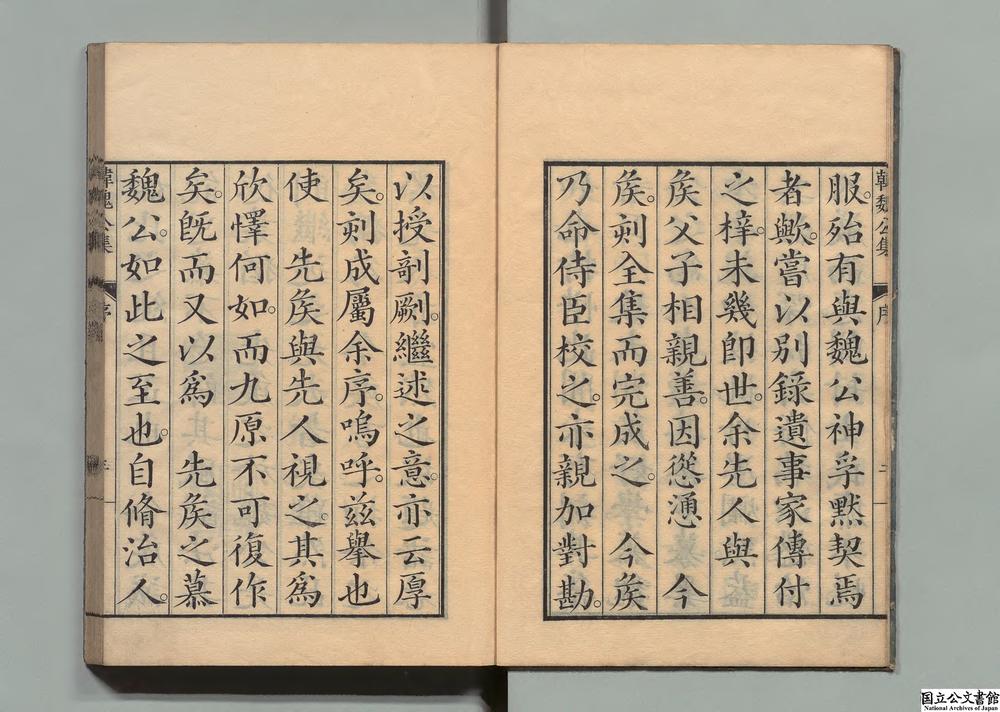 韓魏公集 序
服。殆有與魏公神孚黙契焉
者歟。嘗以別錄遺事家傳付
之梓。未幾卽世。余先人與
矦父子相親善。因慫慂 今
矦。刻全集而完成之。 今矦
乃命侍臣校之。亦親加對勘。
以授剞劂。繼述之意。亦云厚
矣。刻成屬余序。嗚呼。兹擧也
使 先矦與先人視之。其爲
欣懌何如。而九原不可復作
矣。旣而又以爲 先矦之慕
魏公。如此之至也。自脩治人。
韓魏公集 序
国立公文書館
National Archives of Japan